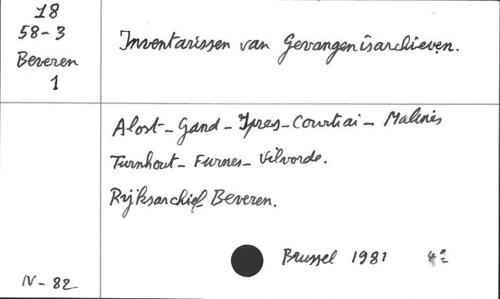 18
58-3
Beveren
1
Inventarissen van Gevangenisarchieven.
Alost - Gand - Ypres - Courtrai - Malines
Turnhout - Furnes - Vilvorde.
Rijksarchief Beveren.
Brussel 1981 4º
IV - 82